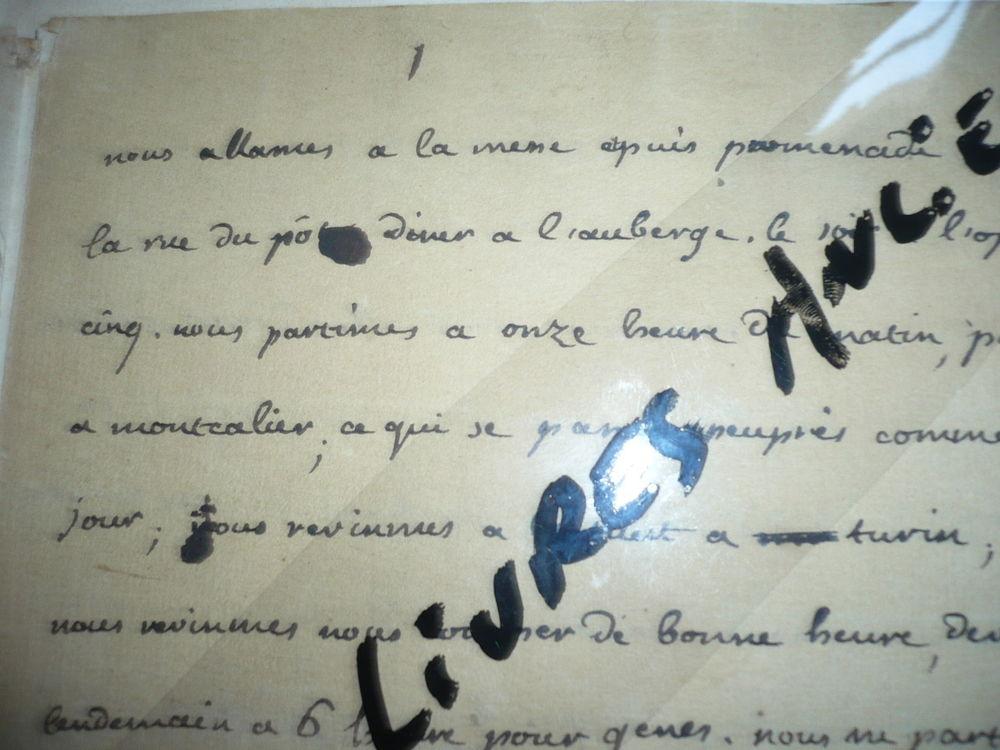 1
nous allames a la messe epuis promenade
la rue du pô diner a l'auberge. le soir l'op
cinq. nous partimes a onze heure du matin, p
a montcalier; ce qui se peuprès comme
jour; nous revinmes a a turin;
nous revinmes nous coucher de bonne heure, de
lendemain a 6 heure pour genes. nous ne part
LiVRES ANCiE